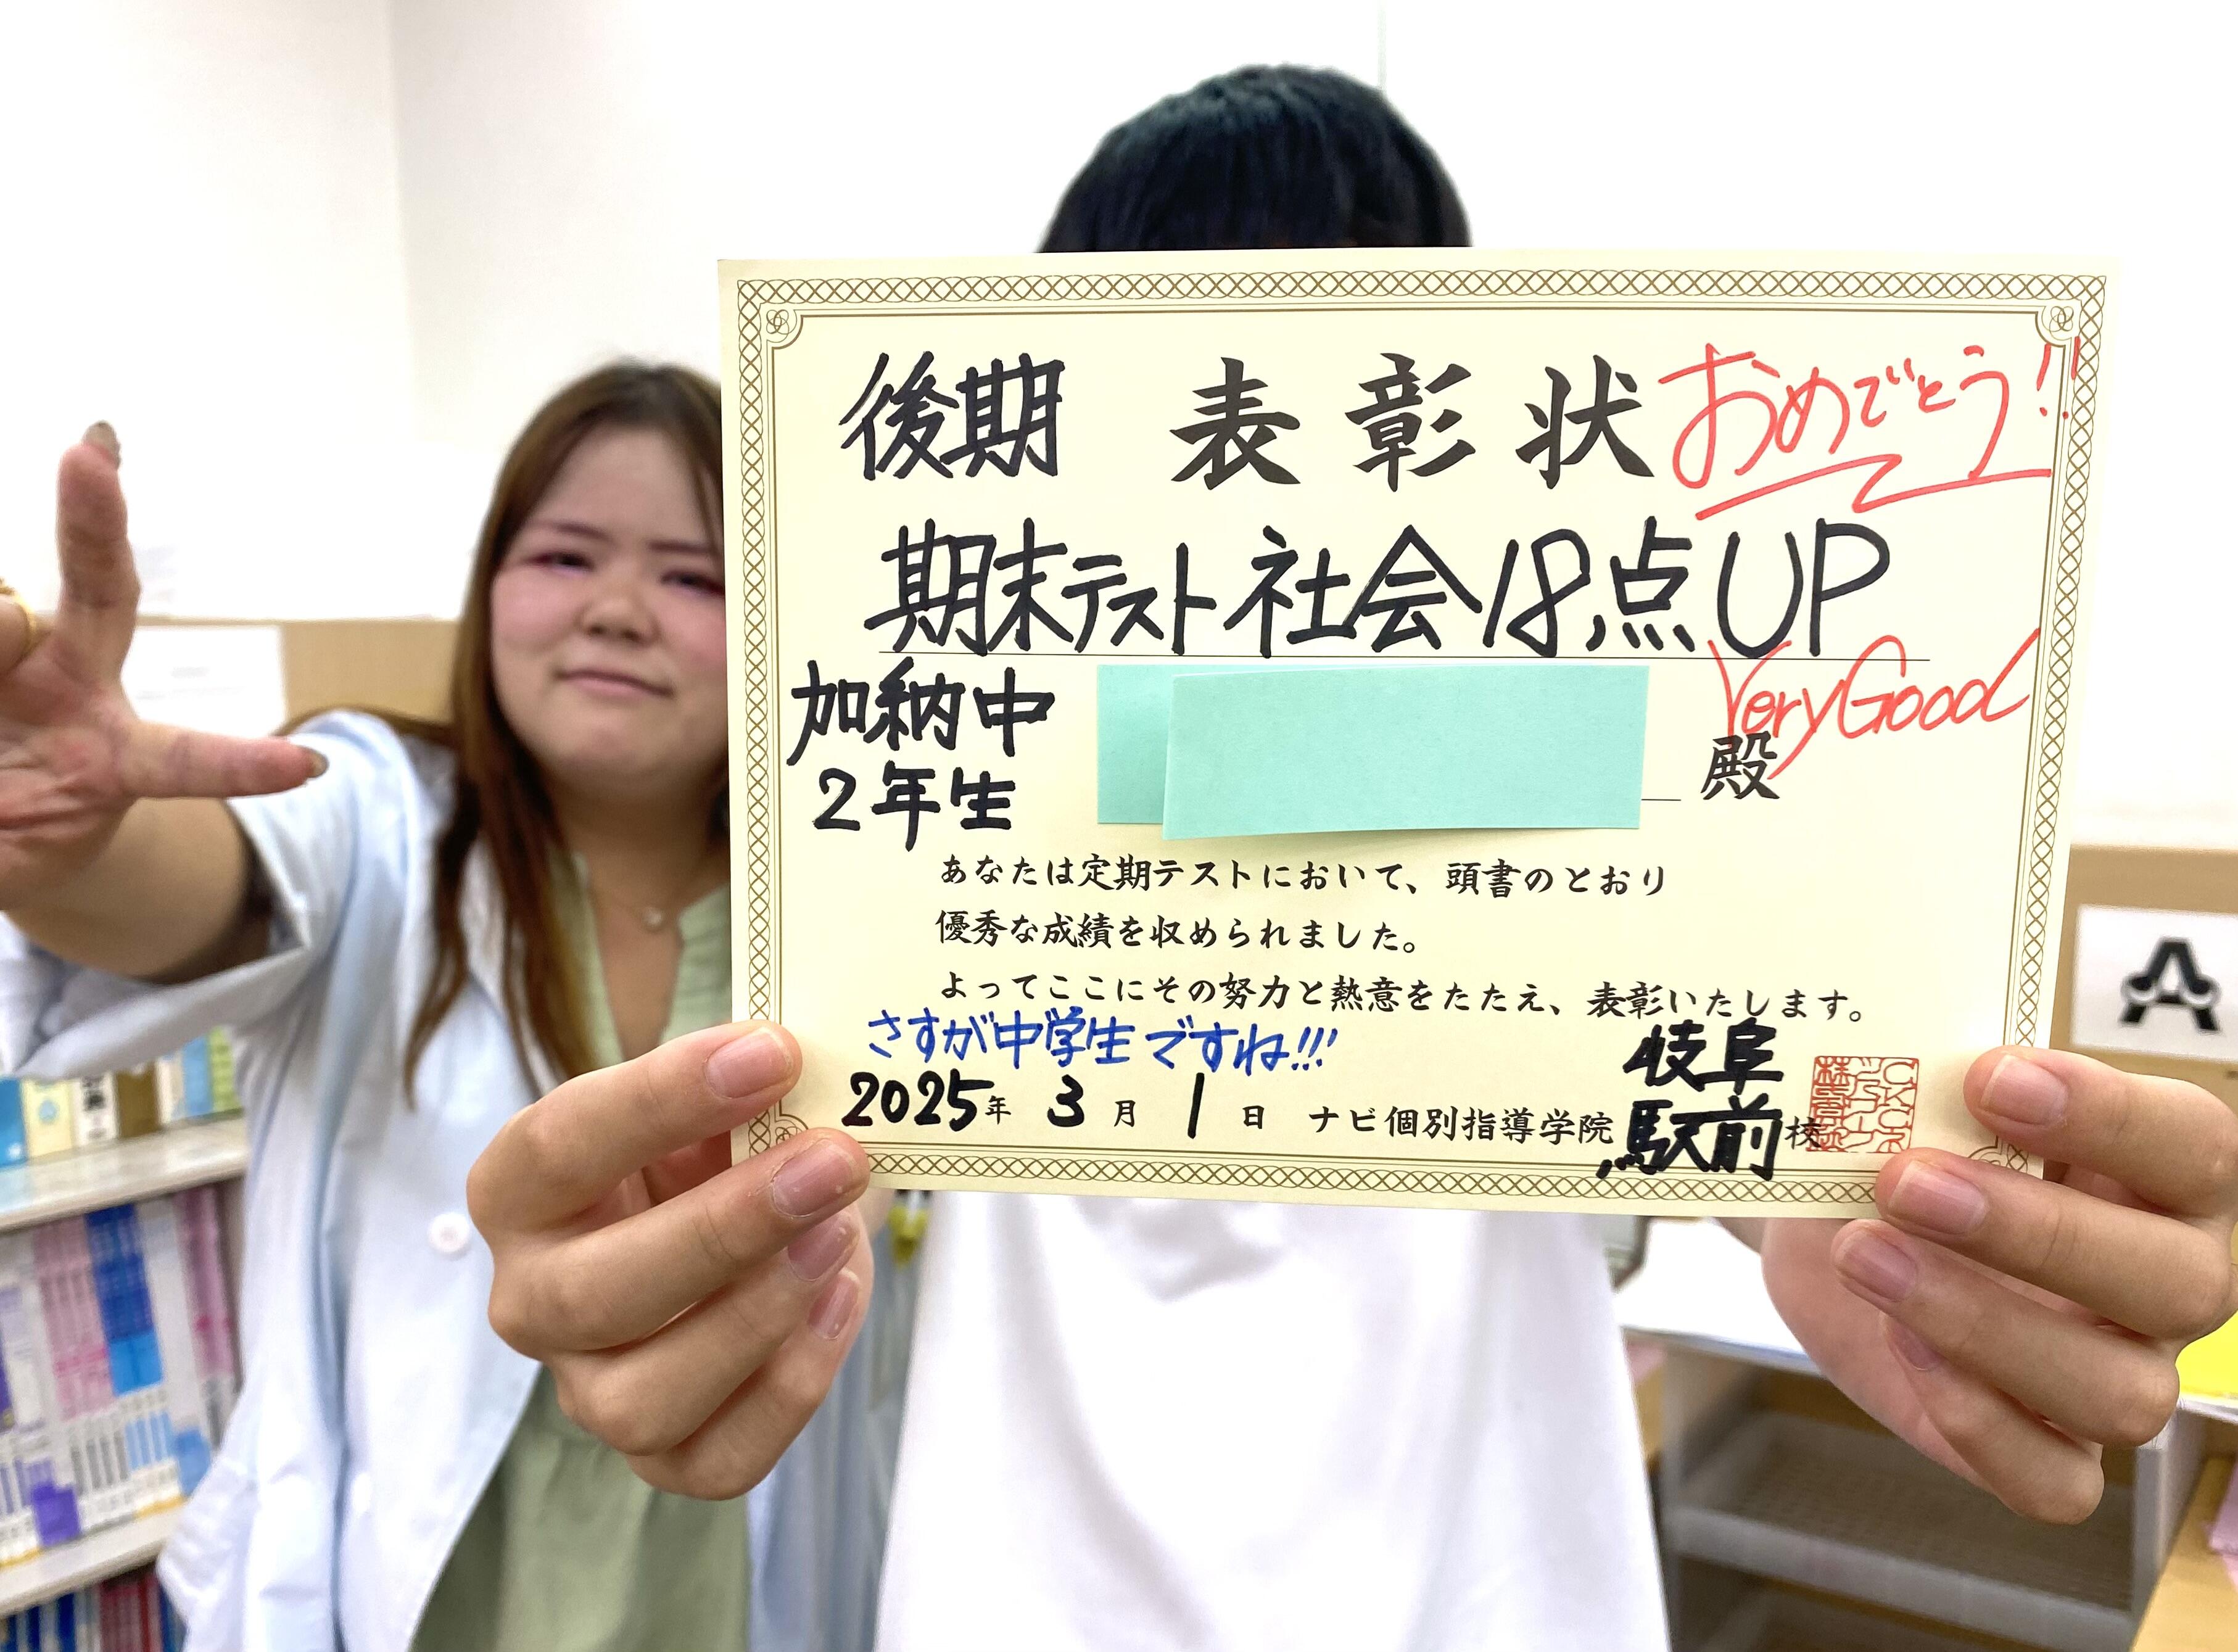 後期 表彰状 おめでとう!!
期末テスト社会18点UP
Very Good
加納中
2年生
殿
あなたは定期テストにおいて、頭書のとおり
優秀な成績を収められました。
よってここにその努力と熱意をたたえ、表彰いたします。
さすが中学生ですね!!!
2025年 3月 1日 ナビ個別指導学院 岐阜駅前校
A